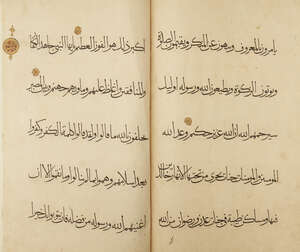 يامرون بالمعروف وينهون عن المنكر ويقيمون الصلوة
ويوتون الزكوة ويطيعون الله ورسوله اوليك
سيرحمهم الله ان الله عزيز حكيم وعد الله
المومنين والمومنات جنات تجري من تحتها الانهار خالدين
فيها ومساكن طيبة في جنات عدن ورضوان من الله
اكبر ذلك هو الفوز العظيم يا ايها النبي جاهد الكفار
والمنافقين واغلظ عليهم وماويهم جهنم وبيس المصير
يحلفون بالله ما قالوا ولقد قالوا كلمة الكفر وكفروا
بعد اسلامهم وهموا بما لم ينالوا وما نقموا الا ان
اغنيهم الله ورسوله من فضله فان يتوبوا يك خيرا